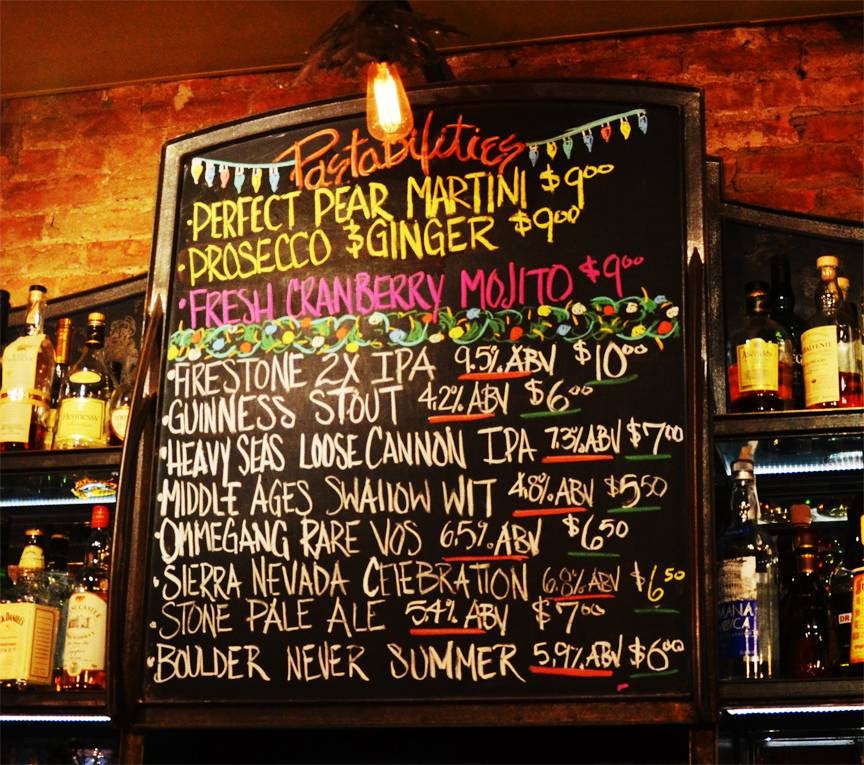 Pastabilities
·PERFECT PEAR MARTINI $9⁰⁰
·PROSECCO & GINGER $9⁰⁰
·FRESH CRANBERRY MOJITO $9⁰⁰
·FIRESTONE 2X IPA 9.5% ABV $10⁰⁰
·GUINNESS STOUT 4.2% ABV $6⁰⁰
·HEAVY SEAS LOOSE CANNON IPA 7.3% ABV $7⁰⁰
·MIDDLE AGES SWALLOW WIT 4.8% ABV $5⁵⁰
·OMMEGANG RARE VOS 6.5% ABV $6⁵⁰
·SIERRA NEVADA CELEBRATION 6.8% ABV $6⁵⁰
·STONE PALE ALE 5.4% ABV $7⁰⁰
·BOULDER NEVER SUMMER 5.9% ABV $6⁰⁰
Hennessy